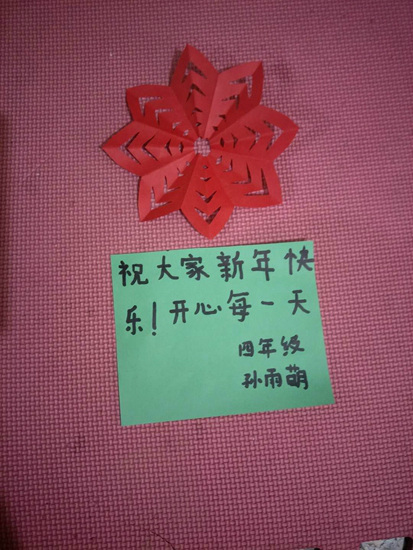 祝大家新年快
乐!开心每一天
四年级
孙雨萌